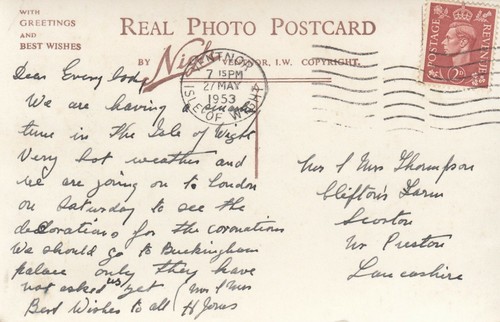 WITH
GREETINGS
AND
BEST WISHES
REAL PHOTO POSTCARD
BY Nigh VENTNOR, I.W. COPYRIGHT.
VENTNOR
7 15 PM
27 MAY
1953
ISLE OF WIGHT
POSTAGE
REVENUE
2D
Dear Everybody
We are having a
time in The Isle of Wight
Very hot weather and
we are going on to London
on Saturday to see the
decorations for the coronations
We should go to Buckingham
palace only they have
not asked us yet
Best Wishes to all
Mrs & Mrs
H Jones
Mr & Mrs Thompson
Clifton's Farm
Scorton
Nr Preston
Lancashire